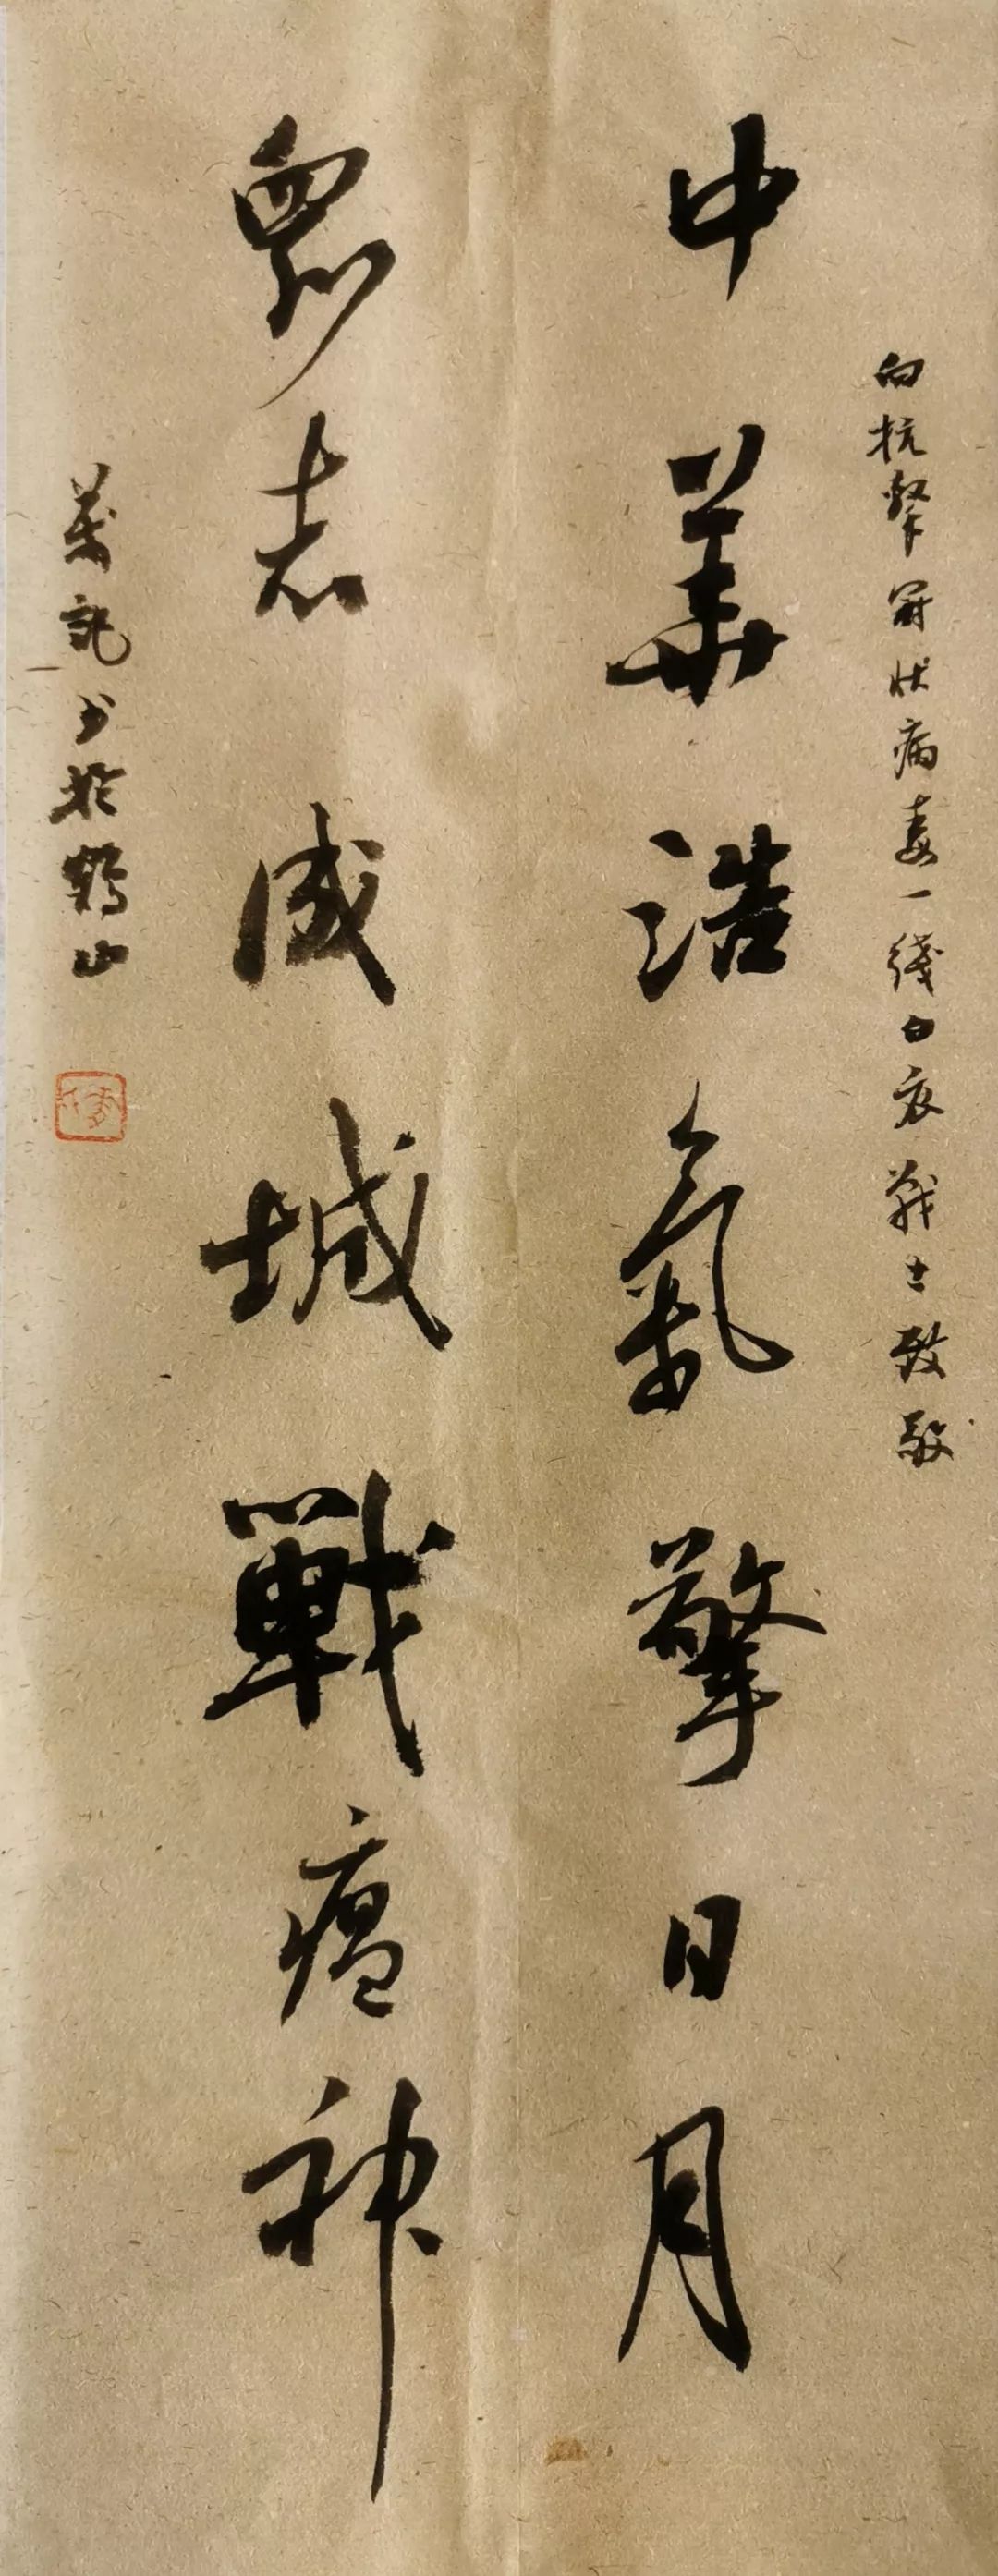 向抗擊冠狀病毒一綫白衣戰士致敬
中華浩氣擎日月
眾志成城戰瘟神
書於鶴山